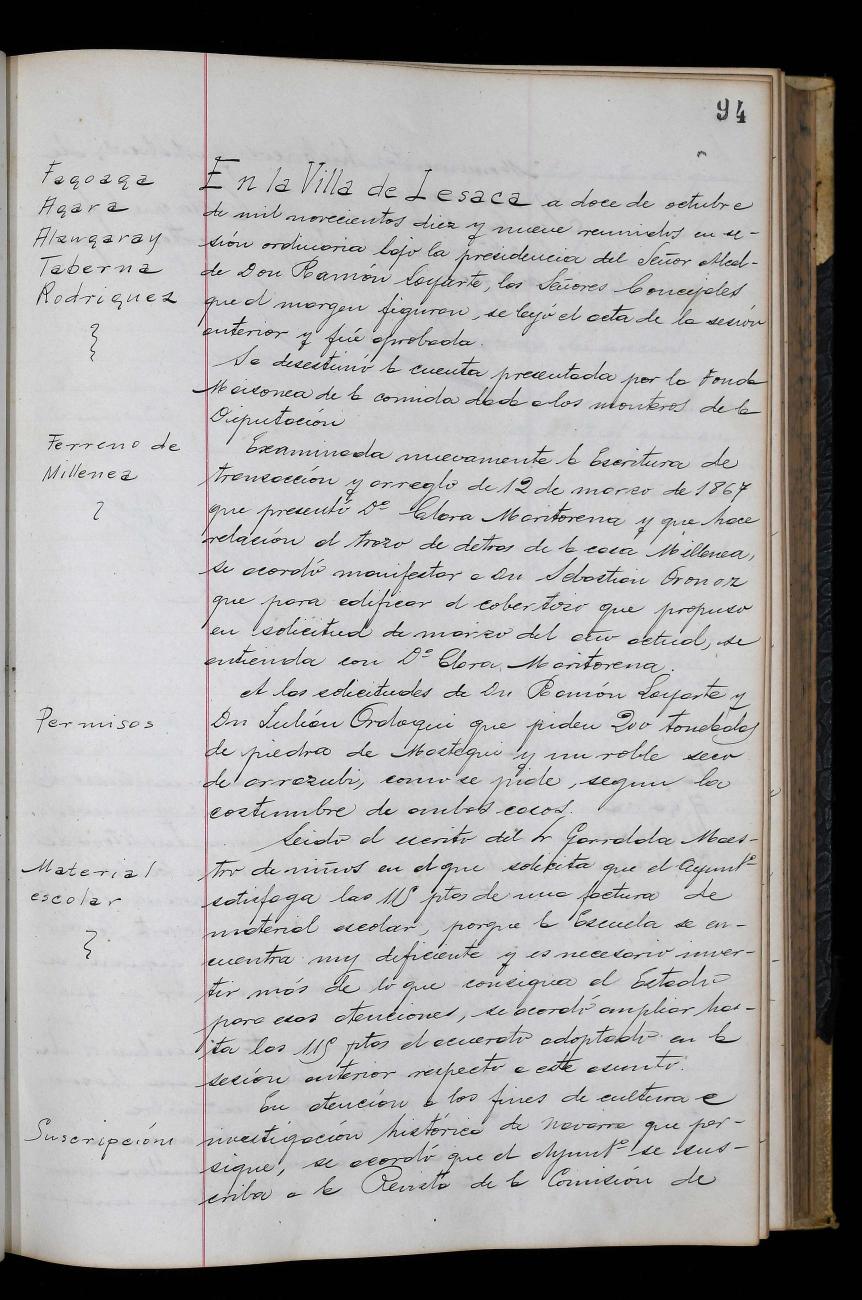 94
Fagoaga
Agara
Alangaray
Taberna
Rodriguez
En la Villa de Lesaca a doce de octubre
de mil novecientos diez y nueve reunidos en se-
sión ordinaria bajo la presidencia del Señor Alcal-
de Don Ramon Loyarte, los Señores Concejales
que al margen figuran, se leyó el acta de la sesión
anterior y fué aprobada.
Se desestimó la cuenta presentada por la Fonda
Maisonea de la comida dada a los monteros de la
Diputación
Terreno de
Millenea
Examinada nuevamente la Escritura de
transacción y arreglo de 12 de marzo de 1867
que presentó Dª Clara Maritorena y que hace
relación al trozo de detras de la casa Millenea,
se acordó manifestar a Dn Sebastian Oronoz
que para edificar el cobertizo que propuso
en solicitud de marzo del año actual, se
entienda con Dª Clara Maritorena.
Permisos
A las solicitudes de Dn Ramón Loyarte y
Dn Julián Ordoqui que piden 200 tondadas
de piedra de Mastegui y un roble seco
de arrazubi, como se pide, segun la
costumbre de ambos casos.
Material
escolar
Leido el escrito del Sr Garralda Maes-
tro de niños en el que solicita que el Ayuntº
satisfaga las 115 ptas de una factura de
material escolar, porque la Escuela se en-
cuentra muy deficiente y es necesario inver-
tir más de lo que consigna el Estado
para esas atenciones, se acordó ampliar has-
ta las 115 ptas el acuerdo adoptado en la
sesión anterior respecto a este asunto.
Suscripción
En atención a los fines de cultura e
investigación histórica de Navarra que per-
sigue, se acordó que el Ayuntº se sus-
criba a la Revista de la Comisión de